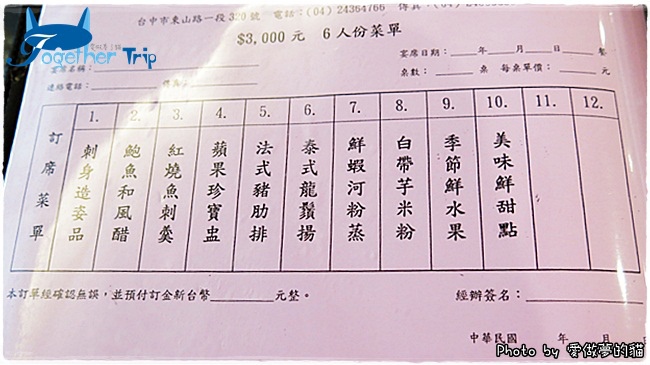 Together Trip
台中市東山路一段320號 電話:(04) 24364766 傳真:(04)
$3,000元 6人份菜單
宴席日期:____年____月____日____餐
宴席名稱:
桌數:____桌 每桌單價:____元
連絡電話:
訂席菜單
1. 刺身造姿品
2. 鮑魚和風醋
3. 紅燒魚刺羹
4. 蘋果珍寶盅
5. 法式豬肋排
6. 泰式龍鬚揚
7. 鮮蝦河粉蒸
8. 白帶芋米粉
9. 季節鮮水果
10. 美味鮮甜點
11.
12.
本訂單經確認無誤,並預付訂金新台幣________元整。
經辦簽名:
中華民國 年 月
Photo by 愛做夢的貓